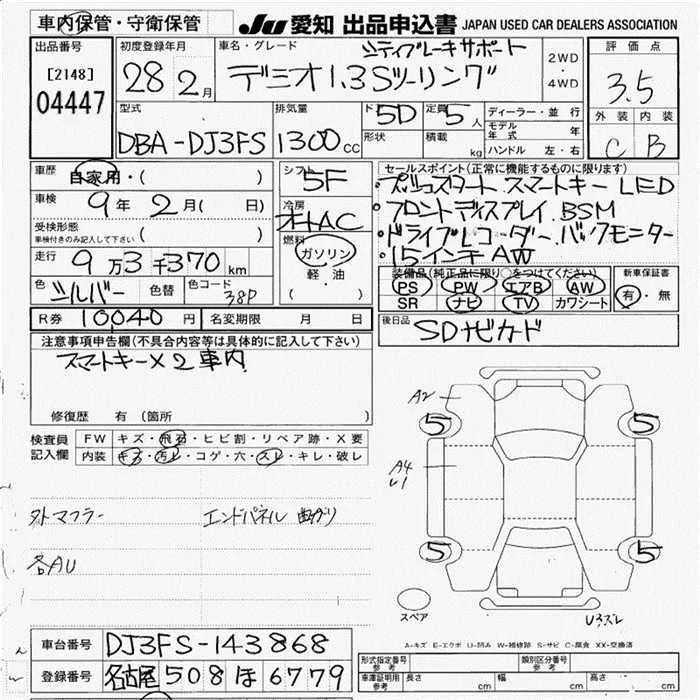 車内保管・守衛保管
JU 愛知 出品申込書 JAPAN USED CAR DEALERS ASSOCIATION
出品番号 [2148] 04447
初度登録年月 28 2月
車名・グレード シティブレーキサポート
デミオ1.3Sツーリング
2WD・4WD
評価点 3.5
外装 内装
C B
型式 DBA-DJ3FS
排気量 1300cc
ド 5D 定員 5人
形状 積載 kg
ディーラー・並行
モデル年式 年
ハンドル 左・右
車歴 自家用・( )
車検 9年 2月( 日)
受検形態 車検付きのみ記入して下さい ( )
走行 9万3千370km
色 シルバー 色替 色コード 38P
シフト 5F
冷房 オートAC
燃料 ガソリン 軽油 ( )
セールスポイント(正常に機能するものに限ります)
・プッシュスタート スマートキー LED
・フロントディスプレイ. BSM
・ドライブレコーダー. バックモニター
・15インチAW
装備品(純正品に限り○をつけてください)
PS PW エアB AW
SR ナビ TV カワシート
新車保証書 有・無
R券 10040円 名変期限 月 日
後日品 SDナビカード
注意事項申告欄(不具合内容等は具体的に記入して下さい)
スマートキー×2車内
修復歴 有 (箇所 )
検査員記入欄
FW キズ・飛石・ヒビ割・リペア跡・X要
内装 キズ・汚レ・コゲ・穴・スレ・キレ・破レ
外マフラー エンドパネル 曲がり
各AU
A2
5 5
A4
U1
5 5
スペア
Uスレ
A-キズ E-エクボ U-凹み W-補修跡 S-サビ C-腐食 XX-交換済
車台番号 DJ3FS-143868
登録番号 名古屋 508 ほ 6779
形式指定番号 参考 類別区分番号 参考
車庫証明用 参考 長さ cm 幅 cm 高さ cm